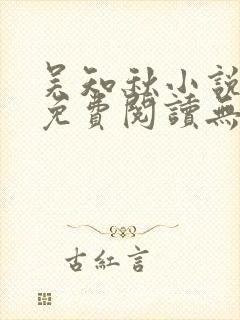 吴知秋小說
免費閱讀無
古紅言